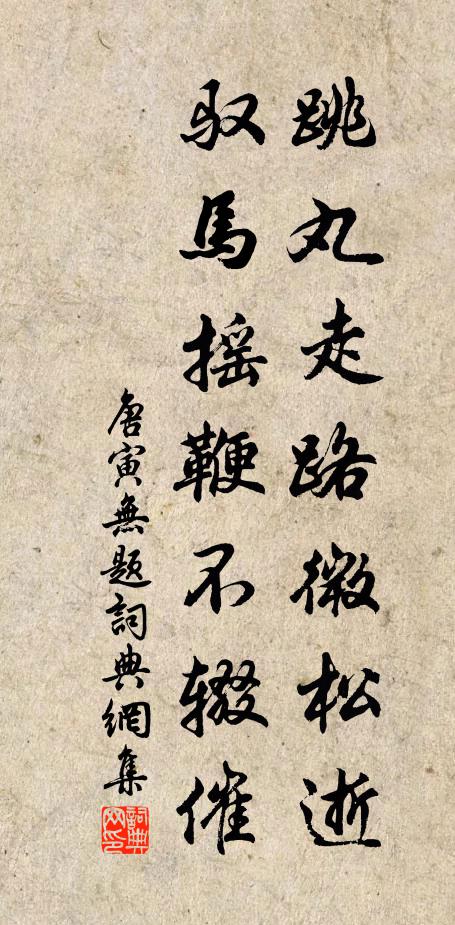 跳丸走路微松逝
驭馬摇鞭不辍催
唐寅無題詞典網集
詞典网印